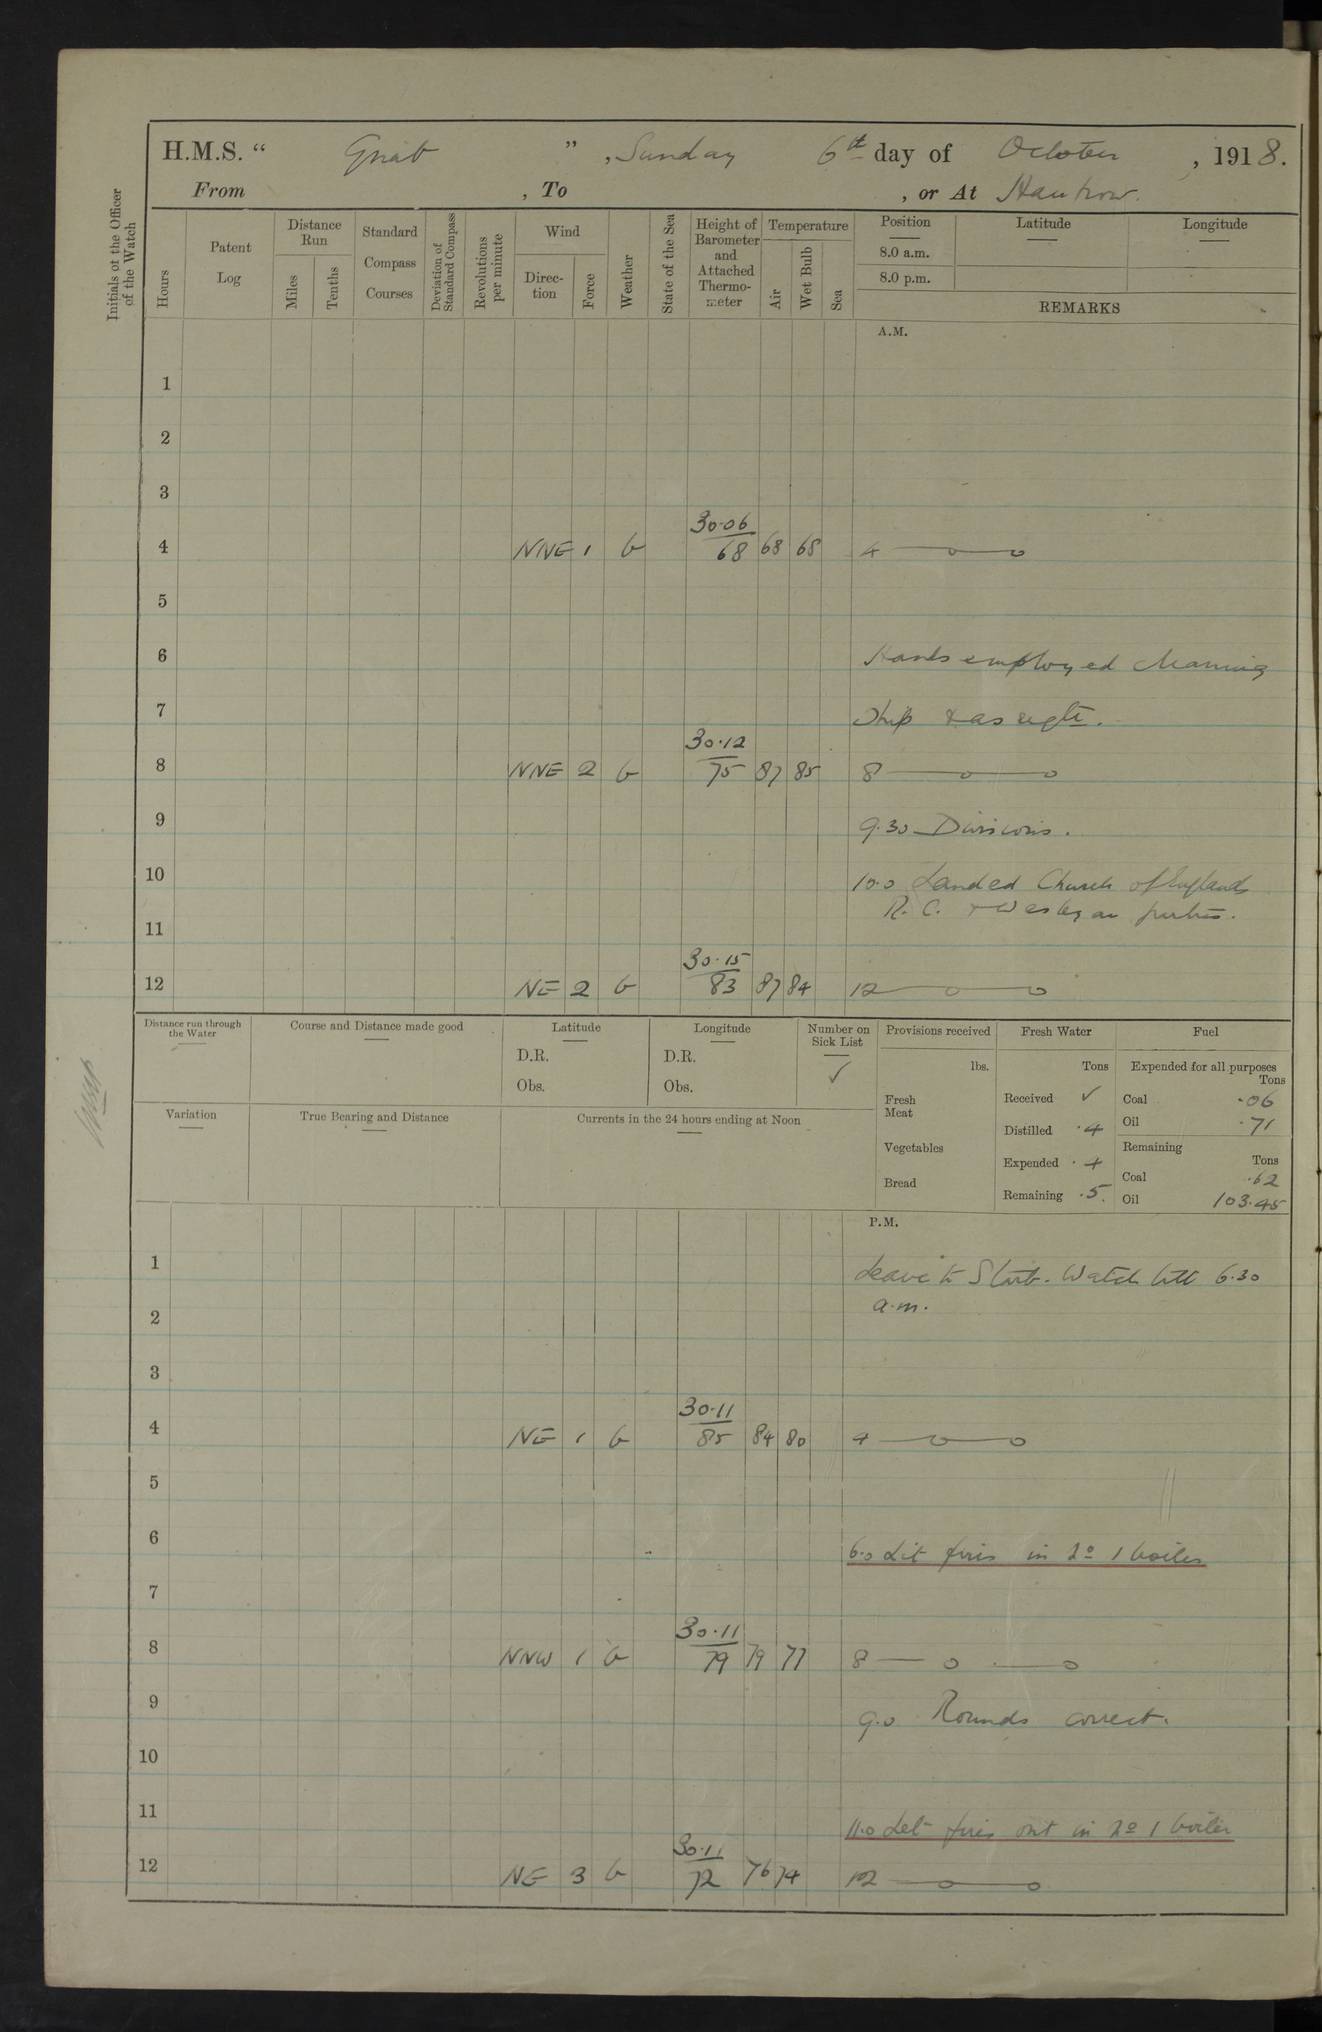 H.M.S. “ Gnat ” , Sunday 6th day of October , 1918.
From , To , or At Hankow.
Initials of the Officer of the Watch
Hours
Patent Log
Distance Run
Miles
Tenths
Standard Compass Courses
Deviation of Standard Compass
Revolutions per minute
Wind
Direc-tion
Force
Weather
State of the Sea
Height of Barometer and Attached Thermo-meter
Temperature
Air
Wet Bulb
Sea
Position Latitude Longitude
8.0 a.m.
8.0 p.m.
REMARKS
A.M.
1
2
3
30.06
4 NNE 1 b 68 68 68 4
5
6 Hands employed cleaning
7 ship & as reqte.
30.12
8 NNE 2 b 75 87 85 8
9 9.30 Divisions.
10 10.0 Landed Church of Englands
R. C. & Wesleyan parties.
11
30.15
12 NE 2 b 83 87 84 12
Distance run through the Water
Course and Distance made good
Latitude
D.R.
Obs.
Longitude
D.R.
Obs.
Number on Sick List
✓
Provisions received
lbs.
Fresh Meat
Vegetables
Bread
Fresh Water
Tons
Received ✓
Distilled .4
Expended .4
Remaining .5.
Fuel
Expended for all purposes
Tons
Coal .06
Oil .71
Remaining
Tons
Coal .62
Oil 103.45
Variation
True Bearing and Distance
Currents in the 24 hours ending at Noon
P.M.
1 Leave to Starb. Watch till 6.30
a.m.
2
3
30.11
4 NE 1 b 85 84 80 4
5
6 6.0 Lit fires in No 1 boiler
7
30.11
8 NNW 1 b 79 79 77 8
9 9.0 Rounds correct.
10
11 11.0 Let fires out in No 1 boiler
30.11
12 NE 3 b 72 76 74 12